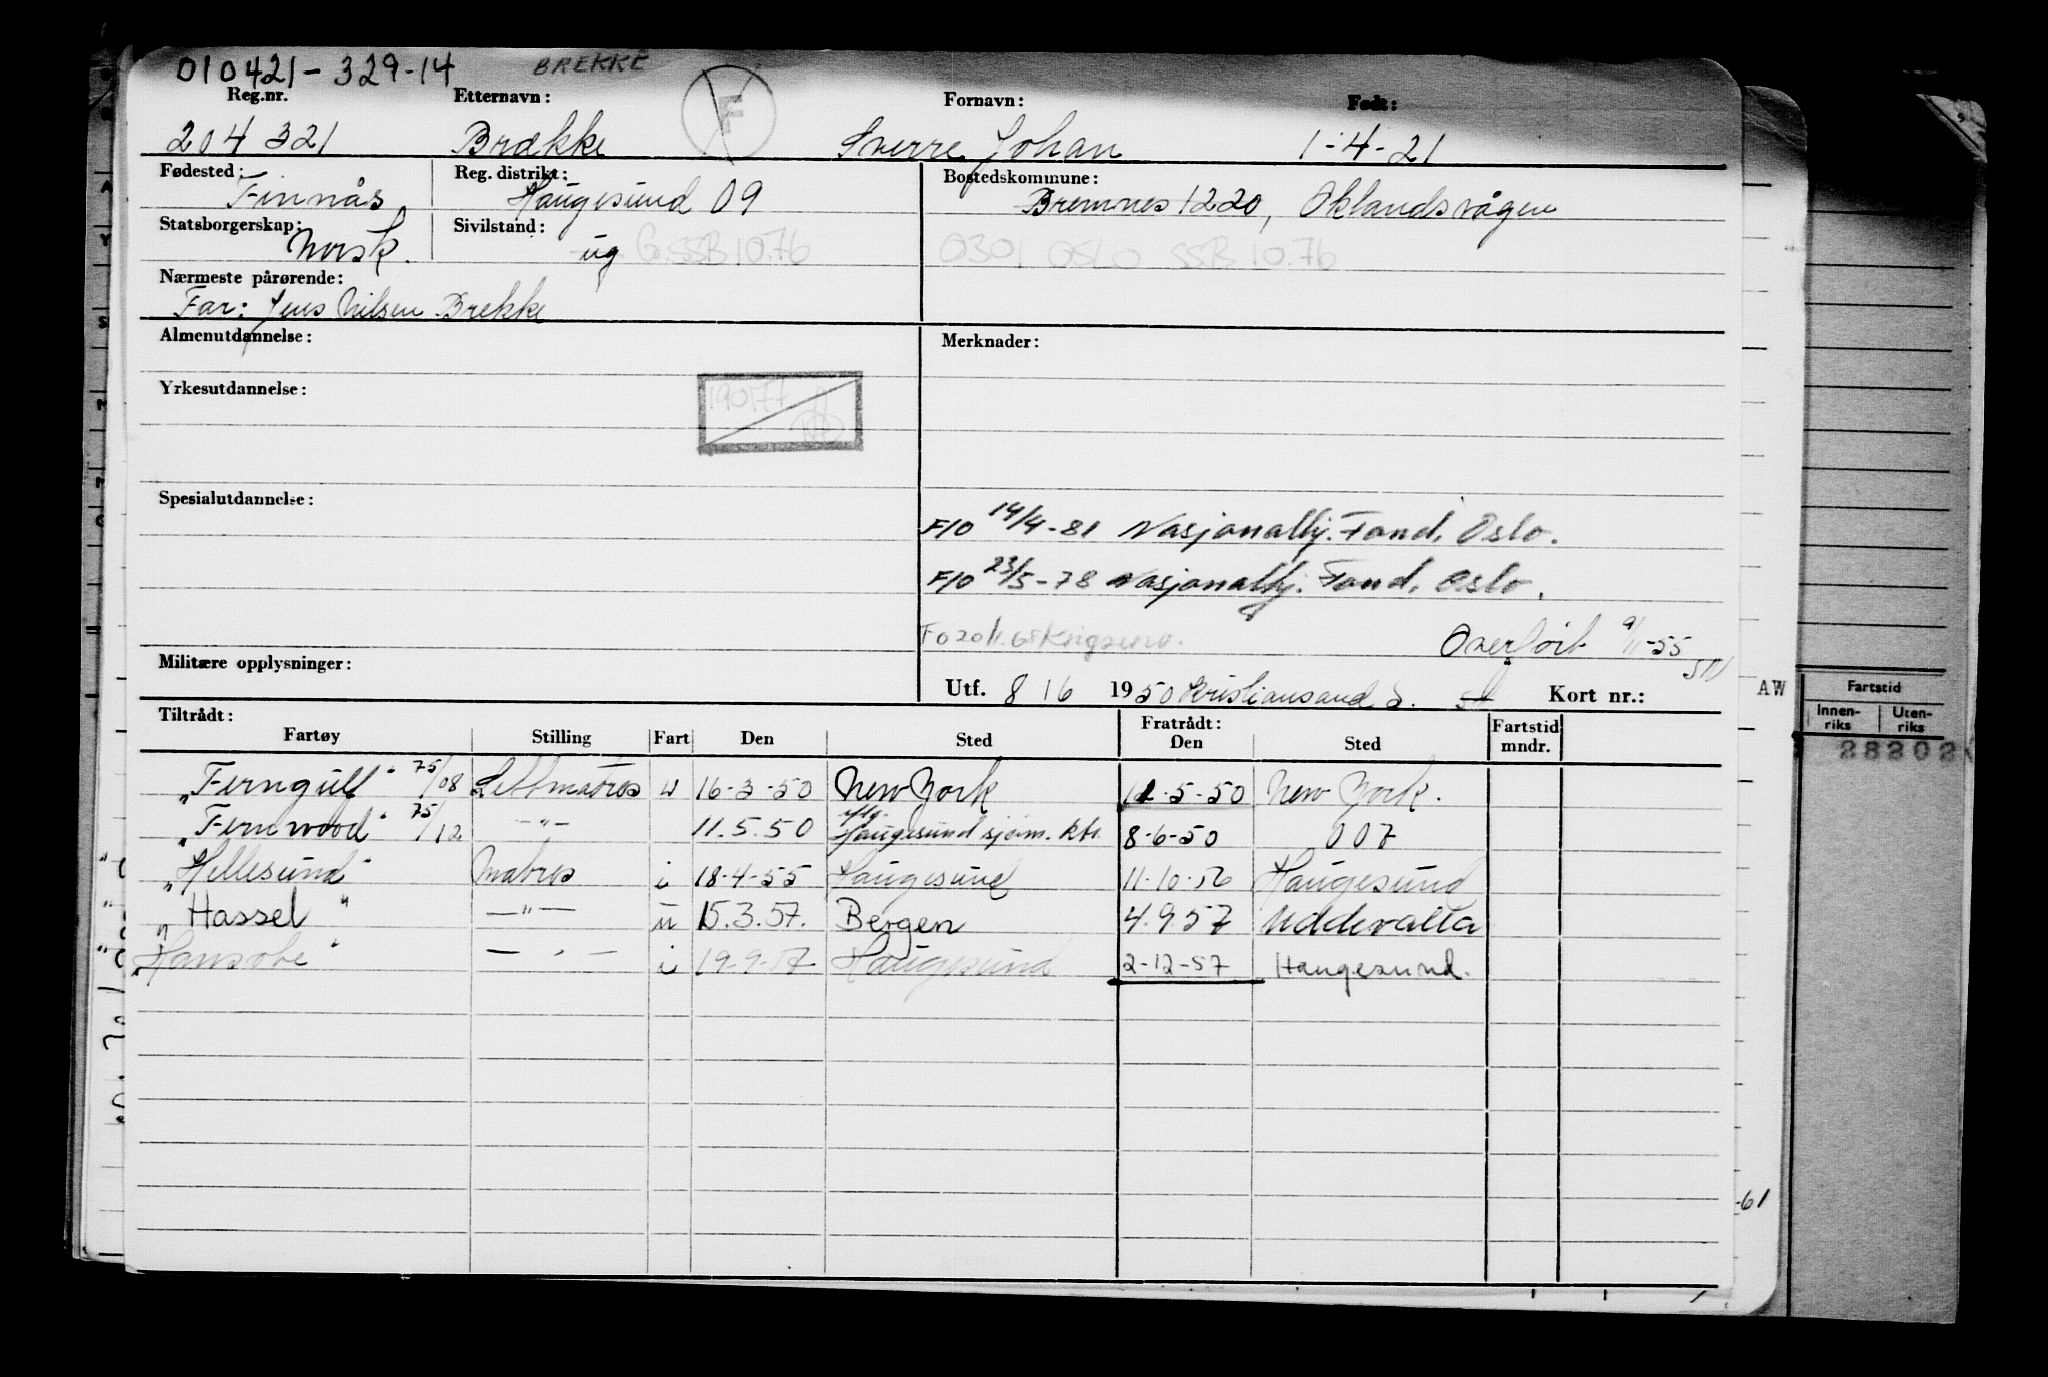 010421-329-14 BREKKE
Reg.nr. Etternavn: F Fornavn: Født:
204 321 Brække Sverre Johan 1-4-21
Fødested: Reg. distrikt: Bostedskommune:
Finnås Haugesund 09 Bremnes 1220, Øklandsvågen
Statsborgerskap: Sivilstand:
Norsk. ug G.SSB 10.76 0301 OSLO SSB 10.76
Nærmeste pårørende:
Far: Jens Nilsen Brekke
Almenutdannelse: Merknader:
Yrkesutdannelse: 190177
Spesialutdannelse:
F/O 14/4-81 Nasjonalhj. Fond, Oslo.
F/O 23/5-78 Nasjonalhj. Fond, Oslo.
Overført 9/11-55
Militære opplysninger:
Utf. 8/6 1950 Kristiansand S. Kort nr.: AW
Tiltrådt: Fratrådt: Fartstid
Fartøy Stilling Fart Den Sted Den Sted Fartstid mndr.
Innen-riks Uten-riks
28202
„Ferngulf" 75/08 Lettmatros u 16-3-50 New York 11-5-50 New York.
„Fernwood" 75/12 -"- 11.5.50 Haugesund sjøm. ktr. 8-6-50 007
„Hellesund" Matros i 18-4-55 Haugesund 11-10-56 Haugesund
„Hassel" -"- u 15.3.57. Bergen 4.9.57 Uddevalla
-"- i 19-9-57 Haugesund 2-12-57 Haugesund.
-61